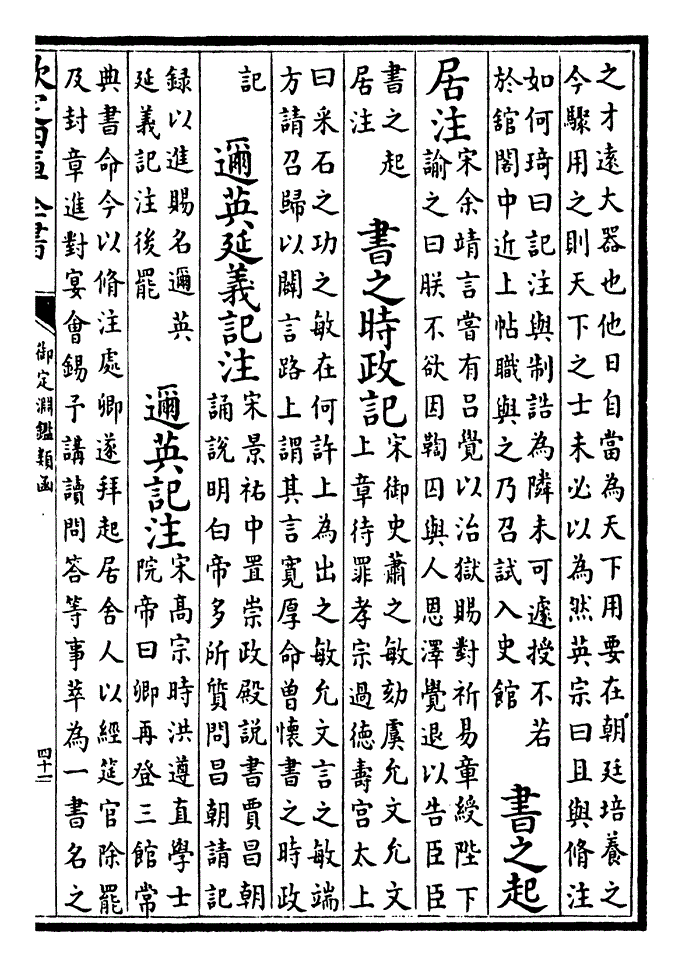 之才遠大器也他日自當為天下用要在朝廷培養之
今驟用之則天下之士未必以為然英宗曰且與脩注
如何琦曰記注與制誥為隣未可遽授不若
於舘閣中近上帖職與之乃召試入史館
書之起
居注
宋余靖言嘗有吕覺以治獄賜對祈易章綬陛下
諭之曰朕不欲因鞫囚與人恩澤覺退以告臣臣
書之起
居注
書之時政記
宋御史蕭之敏劾虞允文允文
上章待罪孝宗過德壽宫太上
曰采石之功之敏在何許上為出之敏允文言之敏端
方請召歸以闢言路上謂其言寛厚命曾懷書之時政
記
邇英延義記注
宋景祐中置崇政殿說書賈昌朝
誦說明白帝多所質問昌朝請記
録以進賜名邇英
延義記注後罷
邇英記注
宋髙宗時洪遵直學士
院帝曰卿再登三館常
典書命今以脩注處卿遂拜起居舍人以經筵官除罷
及封章進對宴會錫予講讀問答等事萃為一書名之
欽定四庫全書
御定淵鑑類函
四十二